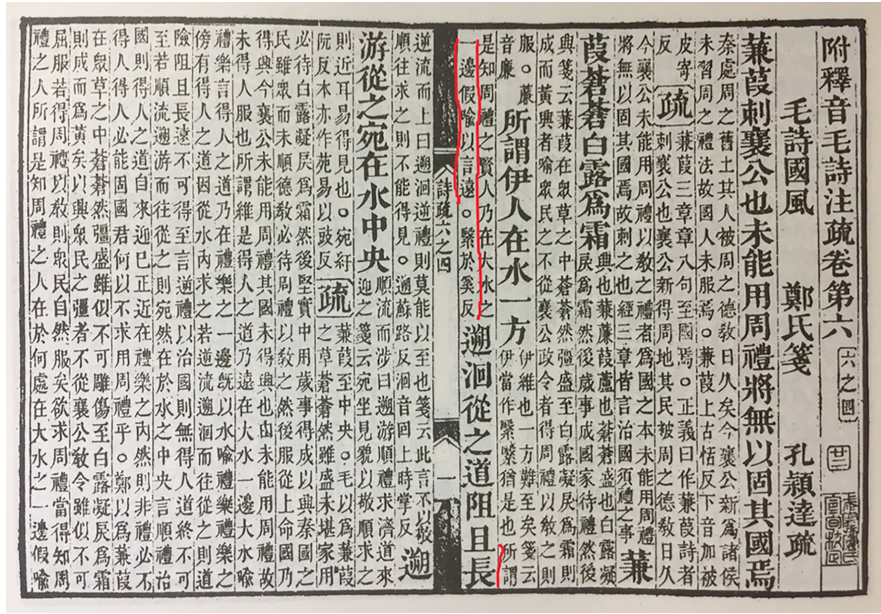 附釋音毛詩注疏卷第六 六之四 廿二
毛詩國風 鄭氏箋 孔穎達疏
蒹葭刺襄公也未能用周禮將無以固其國焉
秦處周之舊土其人被周之德敎日久矣今襄公新為諸侯
未習周之禮法故國人未服焉。蒹葭上古恬反下音加被
皮寄
反
疏
蒹葭三章章八句至國焉。正義曰作蒹葭詩者
刺襄公也襄公新得周地其民被周之德敎日久
今襄公未能用周禮以敎之禮者為國之本未能用周禮
將無以固其國焉故刺之也經三章皆言治國須禮之事
蒹
葭蒼蒼白露為霜
興也蒹薕葭蘆也蒼蒼盛也白露凝
戾為霜然後歲事成國家待禮然後
興箋云蒹葭在衆草之中蒼蒼然彊盛至白露凝戾為霜則
成而黃興者喻衆民之不從襄公政令者得周禮以敎之則
服。薕
音廉
所謂伊人在水一方
伊維也一方難至矣箋云
伊當作繄繄猶是也所謂
是知周禮之賢人乃在大水之
一邊假喻以言遠。繄於奚反
遡洄從之道阻且長
詩疏六之四
一
逆流而上曰遡洄逆禮則莫能以至也箋云此言不以敬
順往求之則不能得見。遡蘇路反洄音回上時掌反
遡
游從之宛在水中央
順流而涉曰遡游順禮求濟道來
迎之箋云宛坐見貌以敬順求之
則近耳易得見也。宛紆
阮反本亦作苑易以豉反
疏
蒹葭至中央。毛以為蒹葭
之草蒼蒼然雖盛未堪家用
必待白露凝戾為霜然後堅實中用歲事得成以興秦國之
民雖衆而未順德敎必待周禮以敎之然後服從上命國乃
得興今襄公未能用周禮其國未得興也由未能用周禮故
未得人服也所謂維是得人之道乃遠在大水一邊大水喻
禮樂言得人之道乃在禮樂之一邊旣以水喻禮樂禮樂之
傍有得人之道因從水内求之若逆流遡洄而往從之則道
險阻且長遠不可得至言逆禮以治國則無得人道終不可
至若順流遡游而往從之則宛然在於水之中央言順禮治
國則得人之道自來迎已正近在禮樂之内然則非禮必不
得人得人必能固國君何以不求用周禮乎。鄭以為蒹葭
在衆草之中蒼蒼然彊盛雖似不可雕傷至白露凝戾為霜
則成而為黃矣以興衆民之彊者不從襄公敎令雖似不可
屈服若得周禮以敎則衆民自然服矣欲求周禮當得知周
禮之人所謂是知周禮之人在於何處在大水之一邊假喻